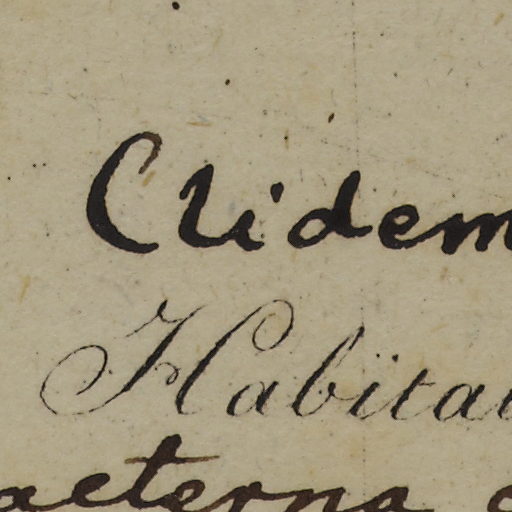 Clidem
Habitat
aeterna